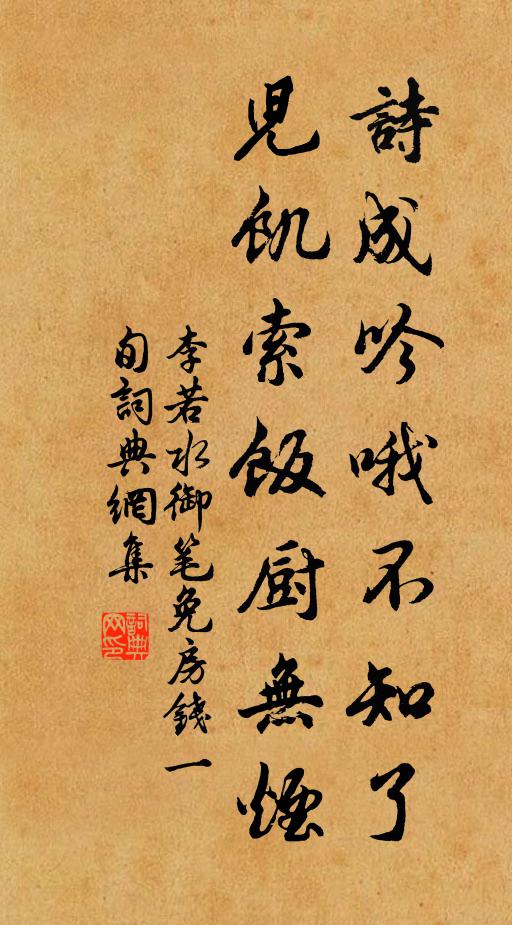 詩成吟哦不知了
兒飢索飯厨無煙
李若水御笔免房錢一
旬詞典網集
詞典网印